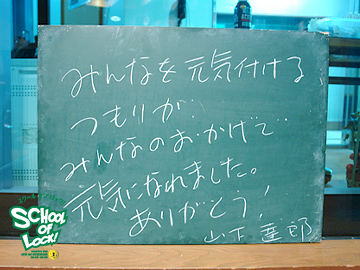 みんなを元気付ける
つもりが、
みんなのおかげで
元気になれました。
ありがとう!
山下達郎
SCHOOL
OF
LOCK!